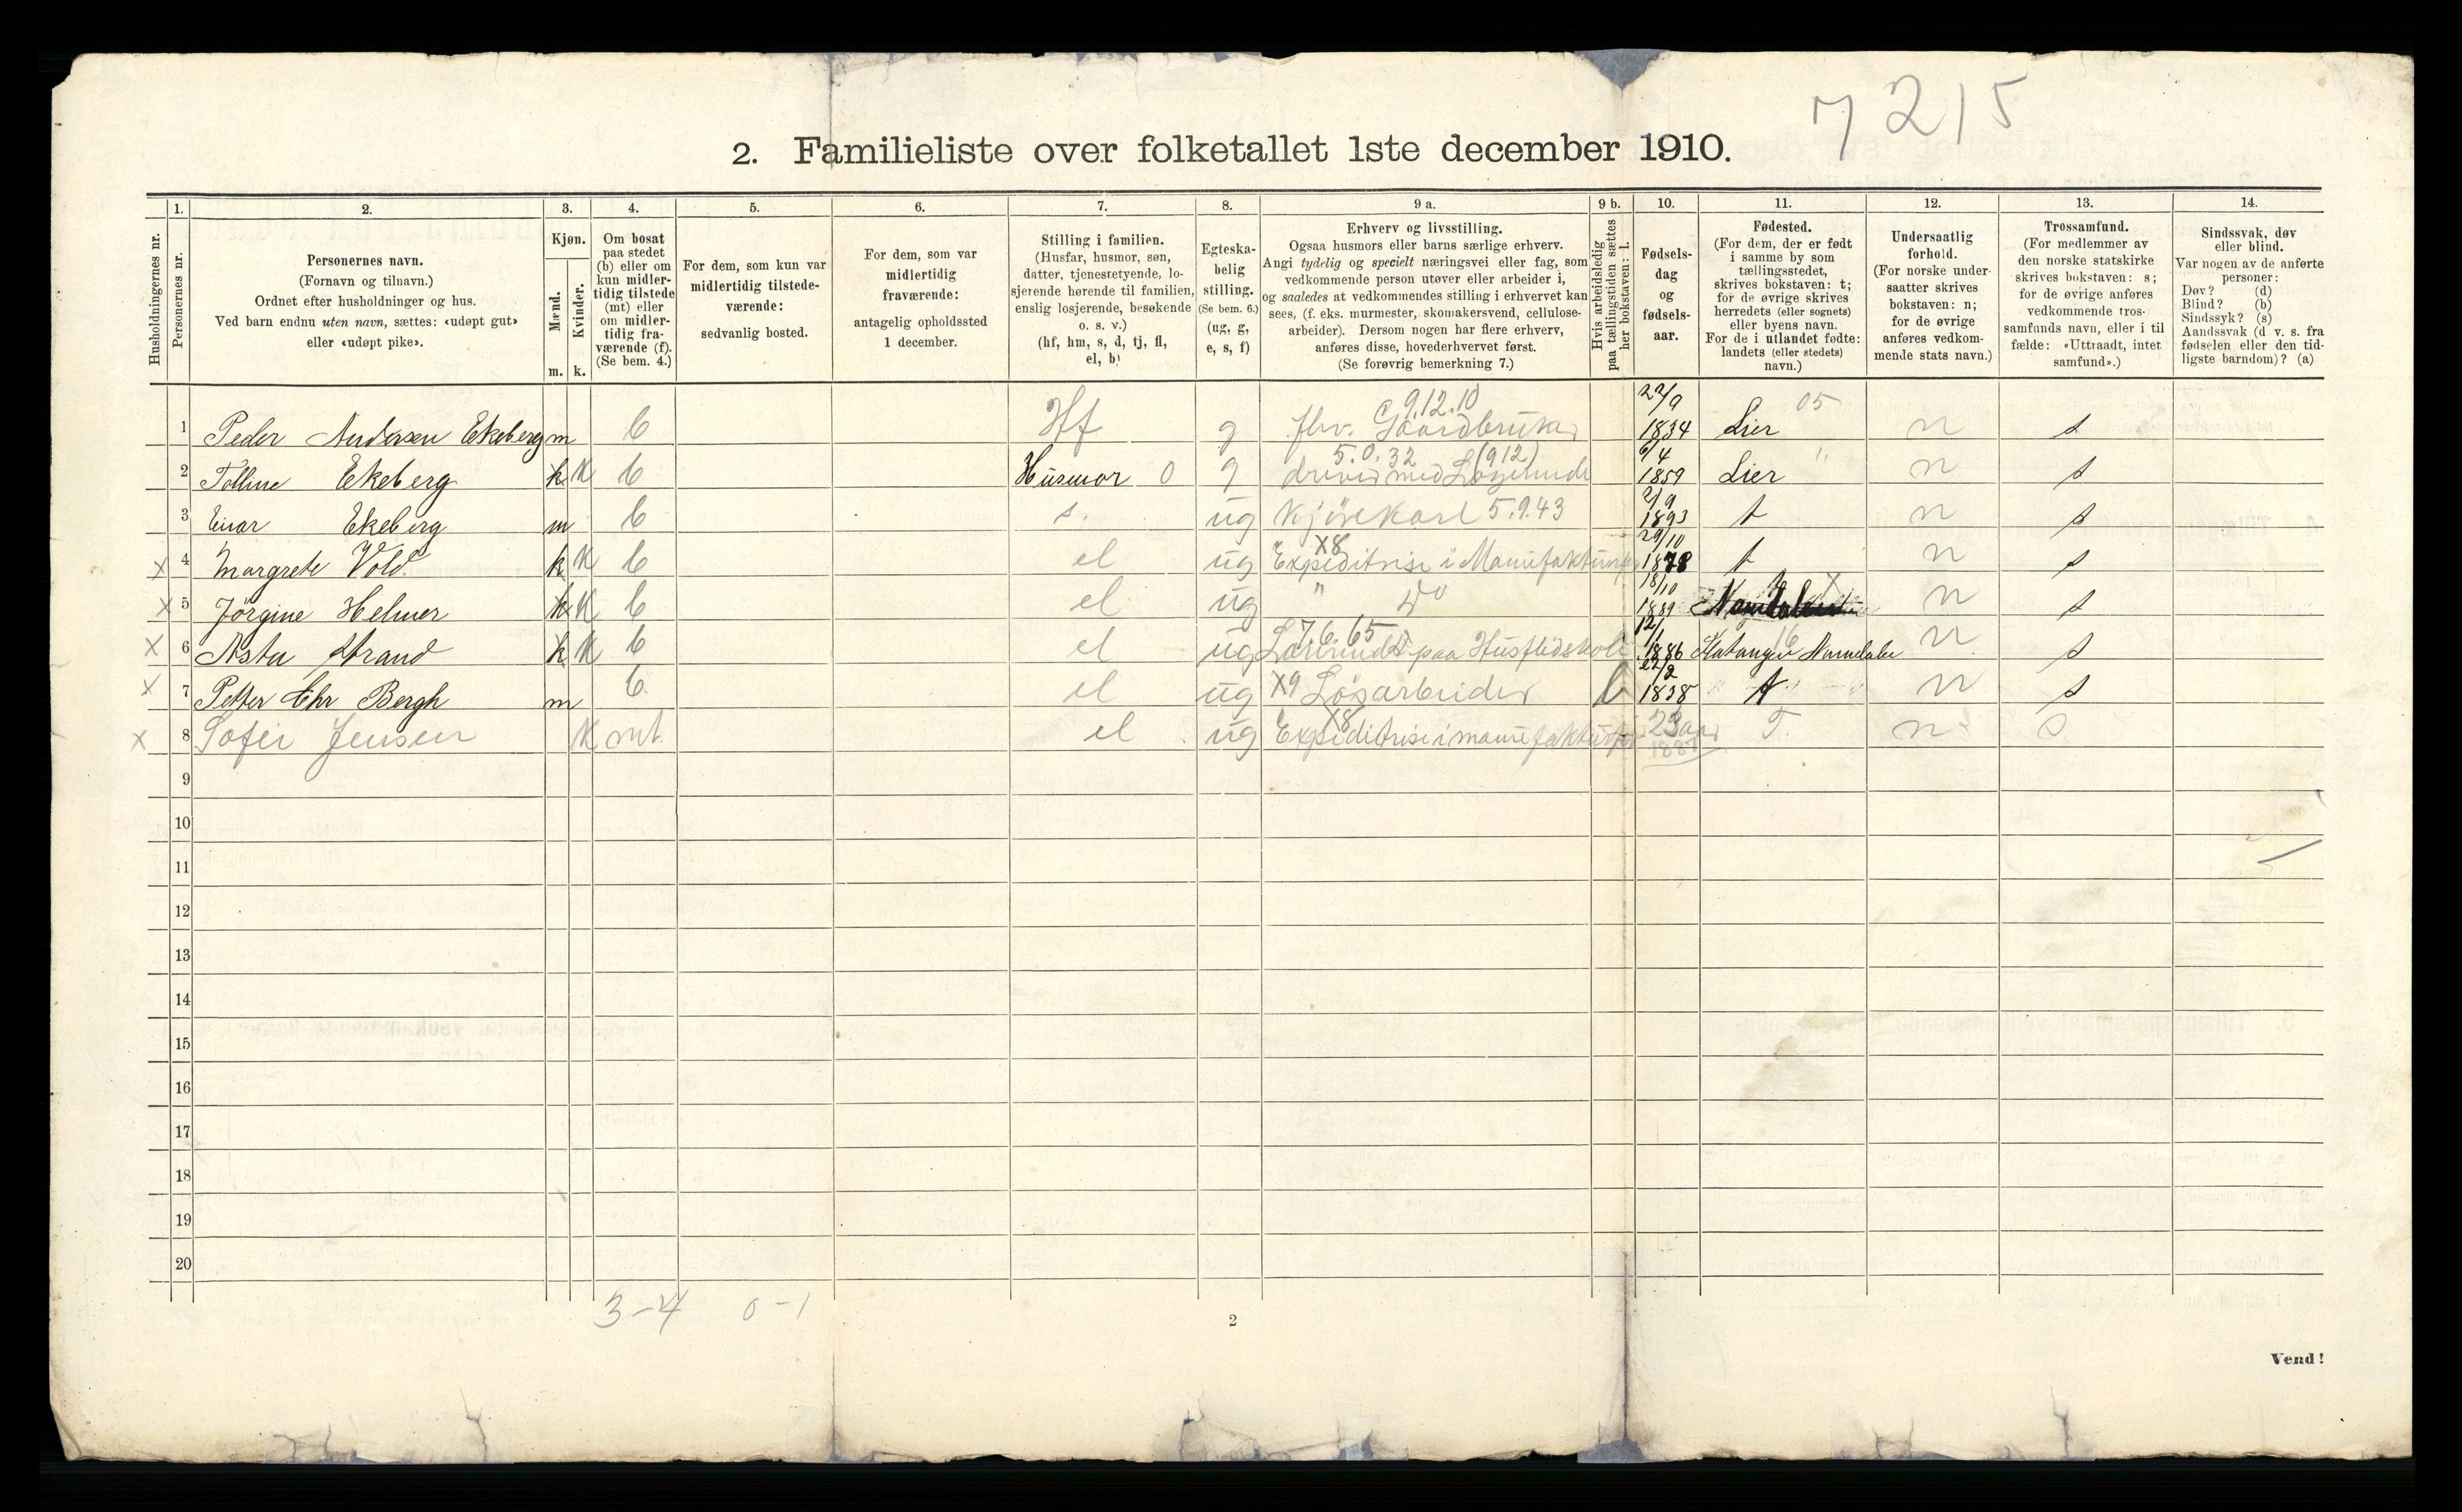 7215
2. Familieliste over folketallet 1ste december 1910.
1. 2. 3. 4. 5. 6. 7. 8. 9 a. 9 b. 10. 11. 12. 13. 14.
Husholdningernes nr.
Personernes nr.
Personernes navn.
(Fornavn og tilnavn.)
Ordnet efter husholdninger og hus.
Ved barn endnu uten navn, sættes: «udøpt gut»
eller «udøpt pike».
Kjøn.
Mænd.
m.
Kvinder.
k.
Om bosat
paa stedet
(b) eller om
kun midler-
tidig tilstede
(mt) eller
om midler-
tidig fra-
værende (f).
(Se bem. 4.)
For dem, som kun var
midlertidig tilstede-
værende:
sedvanlig bosted.
For dem, som var
midlertidig
fraværende:
antagelig opholdssted
1 december.
Stilling i familien.
(Husfar, husmor, søn,
datter, tjenestetyende, lo-
sjerende hørende til familien,
enslig losjerende, besøkende
o. s. v.)
(hf, hm, s, d, tj, fl,
el, b)
Egteska-
belig
stilling.
(Se bem. 6.)
(ug, g,
e, s, f)
Erhverv og livsstilling.
Ogsaa husmors eller barns særlige erhverv.
Angi tydelig og specielt næringsvei eller fag, som
vedkommende person utøver eller arbeider i,
og saaledes at vedkommendes stilling i erhvervet kan
sees, (f. eks. murmester, skomakersvend, cellulose-
arbeider). Dersom nogen har flere erhverv,
anføres disse, hovederhvervet først.
(Se forøvrig bemerkning 7.)
Hvis arbeidsledig
paa tællingstiden sættes
her bokstaven: l.
Fødsels-
dag
og
fødsels-
aar.
Fødested.
(For dem, der er født
i samme by som
tællingsstedet,
skrives bokstaven: t;
for de øvrige skrives
herredets (eller sognets)
eller byens navn.
For de i utlandet fødte:
landets (eller stedets)
navn.)
Undersaatlig
forhold.
(For norske under-
saatter skrives
bokstaven: n;
for de øvrige
anføres vedkom-
mende stats navn.)
Trossamfund.
(For medlemmer av
den norske statskirke
skrives bokstaven: s;
for de øvrige anføres
vedkommende tros-
samfunds navn, eller i til
fælde: «Uttraadt, intet
samfund».)
Sindssvak, døv
eller blind.
Var nogen av de anførte
personer:
Døv? (d)
Blind? (b)
Sindssyk? (s)
Aandssvak (d v. s. fra
fødselen eller den tid-
ligste barndom)? (a)
9.12.10 22/9 05
1 Peder Andersen Ekeberg m b Hf g fhv. Gaardbruker 1834 Lier n s
5.0.32 (912) 6/4
2 Tolline Ekeberg k K b Husmor 0 g driver med Logerende 1859 Lier " n s
2/9
3 Einar Ekeberg m b s. ug Kjörekarl 5.9.43 1893 t n s
X8 29/10
x 4 Margrete Vold k K b el ug Expeditrise i Manufaktur 1878 t n s
18/10
x 5 Jörgine Helmer k K b el ug " Do 1889 t n s
76.65 12/1 16
x 6 Asta Strand k K b el ug paa Husflidskole 1886 Namdalen n s
22/2
x 7 Petter Chr Bergh m b el ug X9 Lösarbeider l 1838 t n s
X8
x 8 Sofie Jensen K mt. el ug Expeditrise i manufaktur 23 aar T. n s
1887
9
10
11
12
13
14
15
16
17
18
19
20
3-4 0-1
2
Vend!